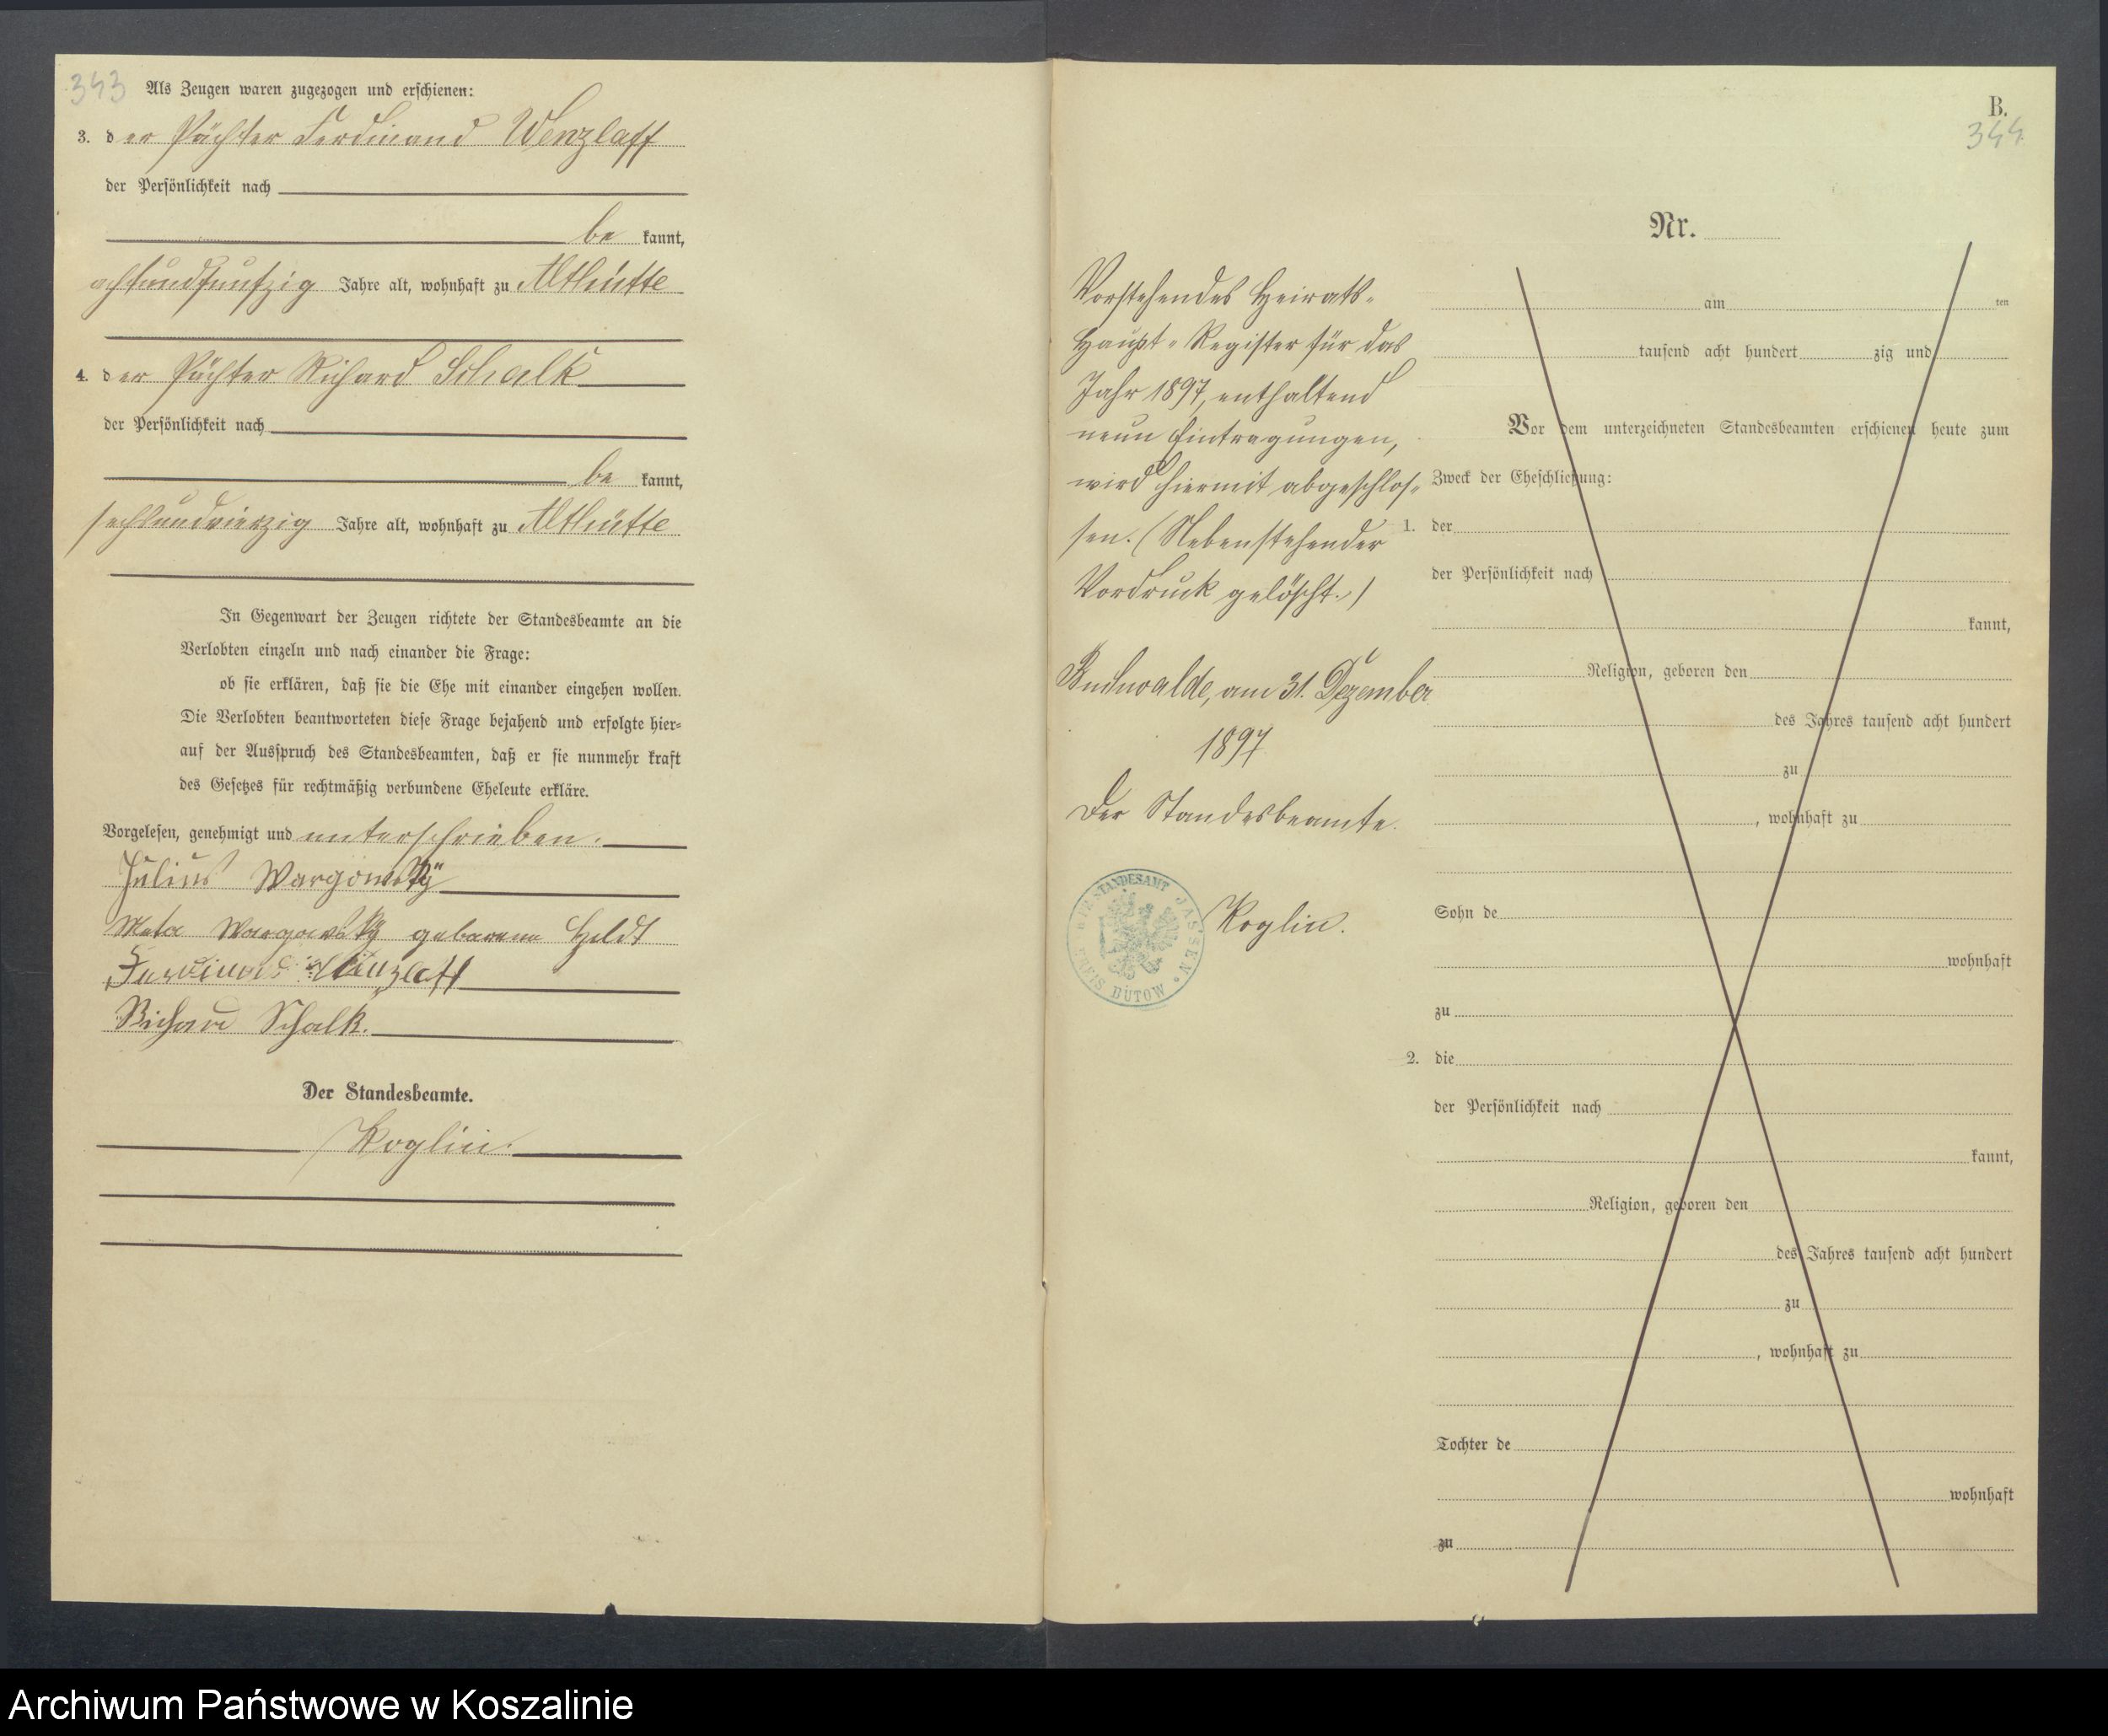 343
Als Zeugen waren zugezogen und erschienen:
3. der Pächter Ferdinand Wenzlaff
der Persönlichkeit nach
be kannt,
achtundfünfzig Jahre alt, wohnhaft zu Althütte
4. der Pächter Richard Schalk
der Persönlichkeit nach
be kannt,
sechsundvierzig Jahre alt, wohnhaft zu Althütte
In Gegenwart der Zeugen richtete der Standesbeamte an die
Verlobten einzeln und nach einander die Frage:
ob sie erklären, daß sie die Ehe mit einander eingehen wollen.
Die Verlobten beantworteten diese Frage bejahend und erfolgte hier-
auf der Ausspruch des Standesbeamten, daß er sie nunmehr kraft
des Gesetzes für rechtmäßig verbundene Eheleute erkläre.
Vorgelesen, genehmigt und unterschrieben.
Julius Wargowsky
Meta Wargowsky geborene Heldt
Ferdinand Wenzlaff
Richard Schalk.
Der Standesbeamte.
Koglin.
Vorstehendes Heirats-
Haupt-Register für das
Jahr 1897, enthaltend
neun Eintragungen,
wird hiermit abgeschlos-
sen. (Nebenstehender
Vordruck gelöscht.)
am 31. Dezember
1897
Der Standesbeamte.
Koglin.
STANDESAMT JASSEN
KREIS BÜTOW
B.
344
Nr.
am ten
tausend acht hundert zig und
Vor dem unterzeichneten Standesbeamten erschienen heute zum
Zweck der Eheschließung:
1. der
der Persönlichkeit nach
kannt,
Religion, geboren den
des Jahres tausend acht hundert
zu
, wohnhaft zu
Sohn de
wohnhaft
zu
2. die
der Persönlichkeit nach
kannt,
Religion, geboren den
des Jahres tausend acht hundert
zu
, wohnhaft zu
Tochter de
wohnhaft
zu
Archiwum Państwowe w Koszalinie